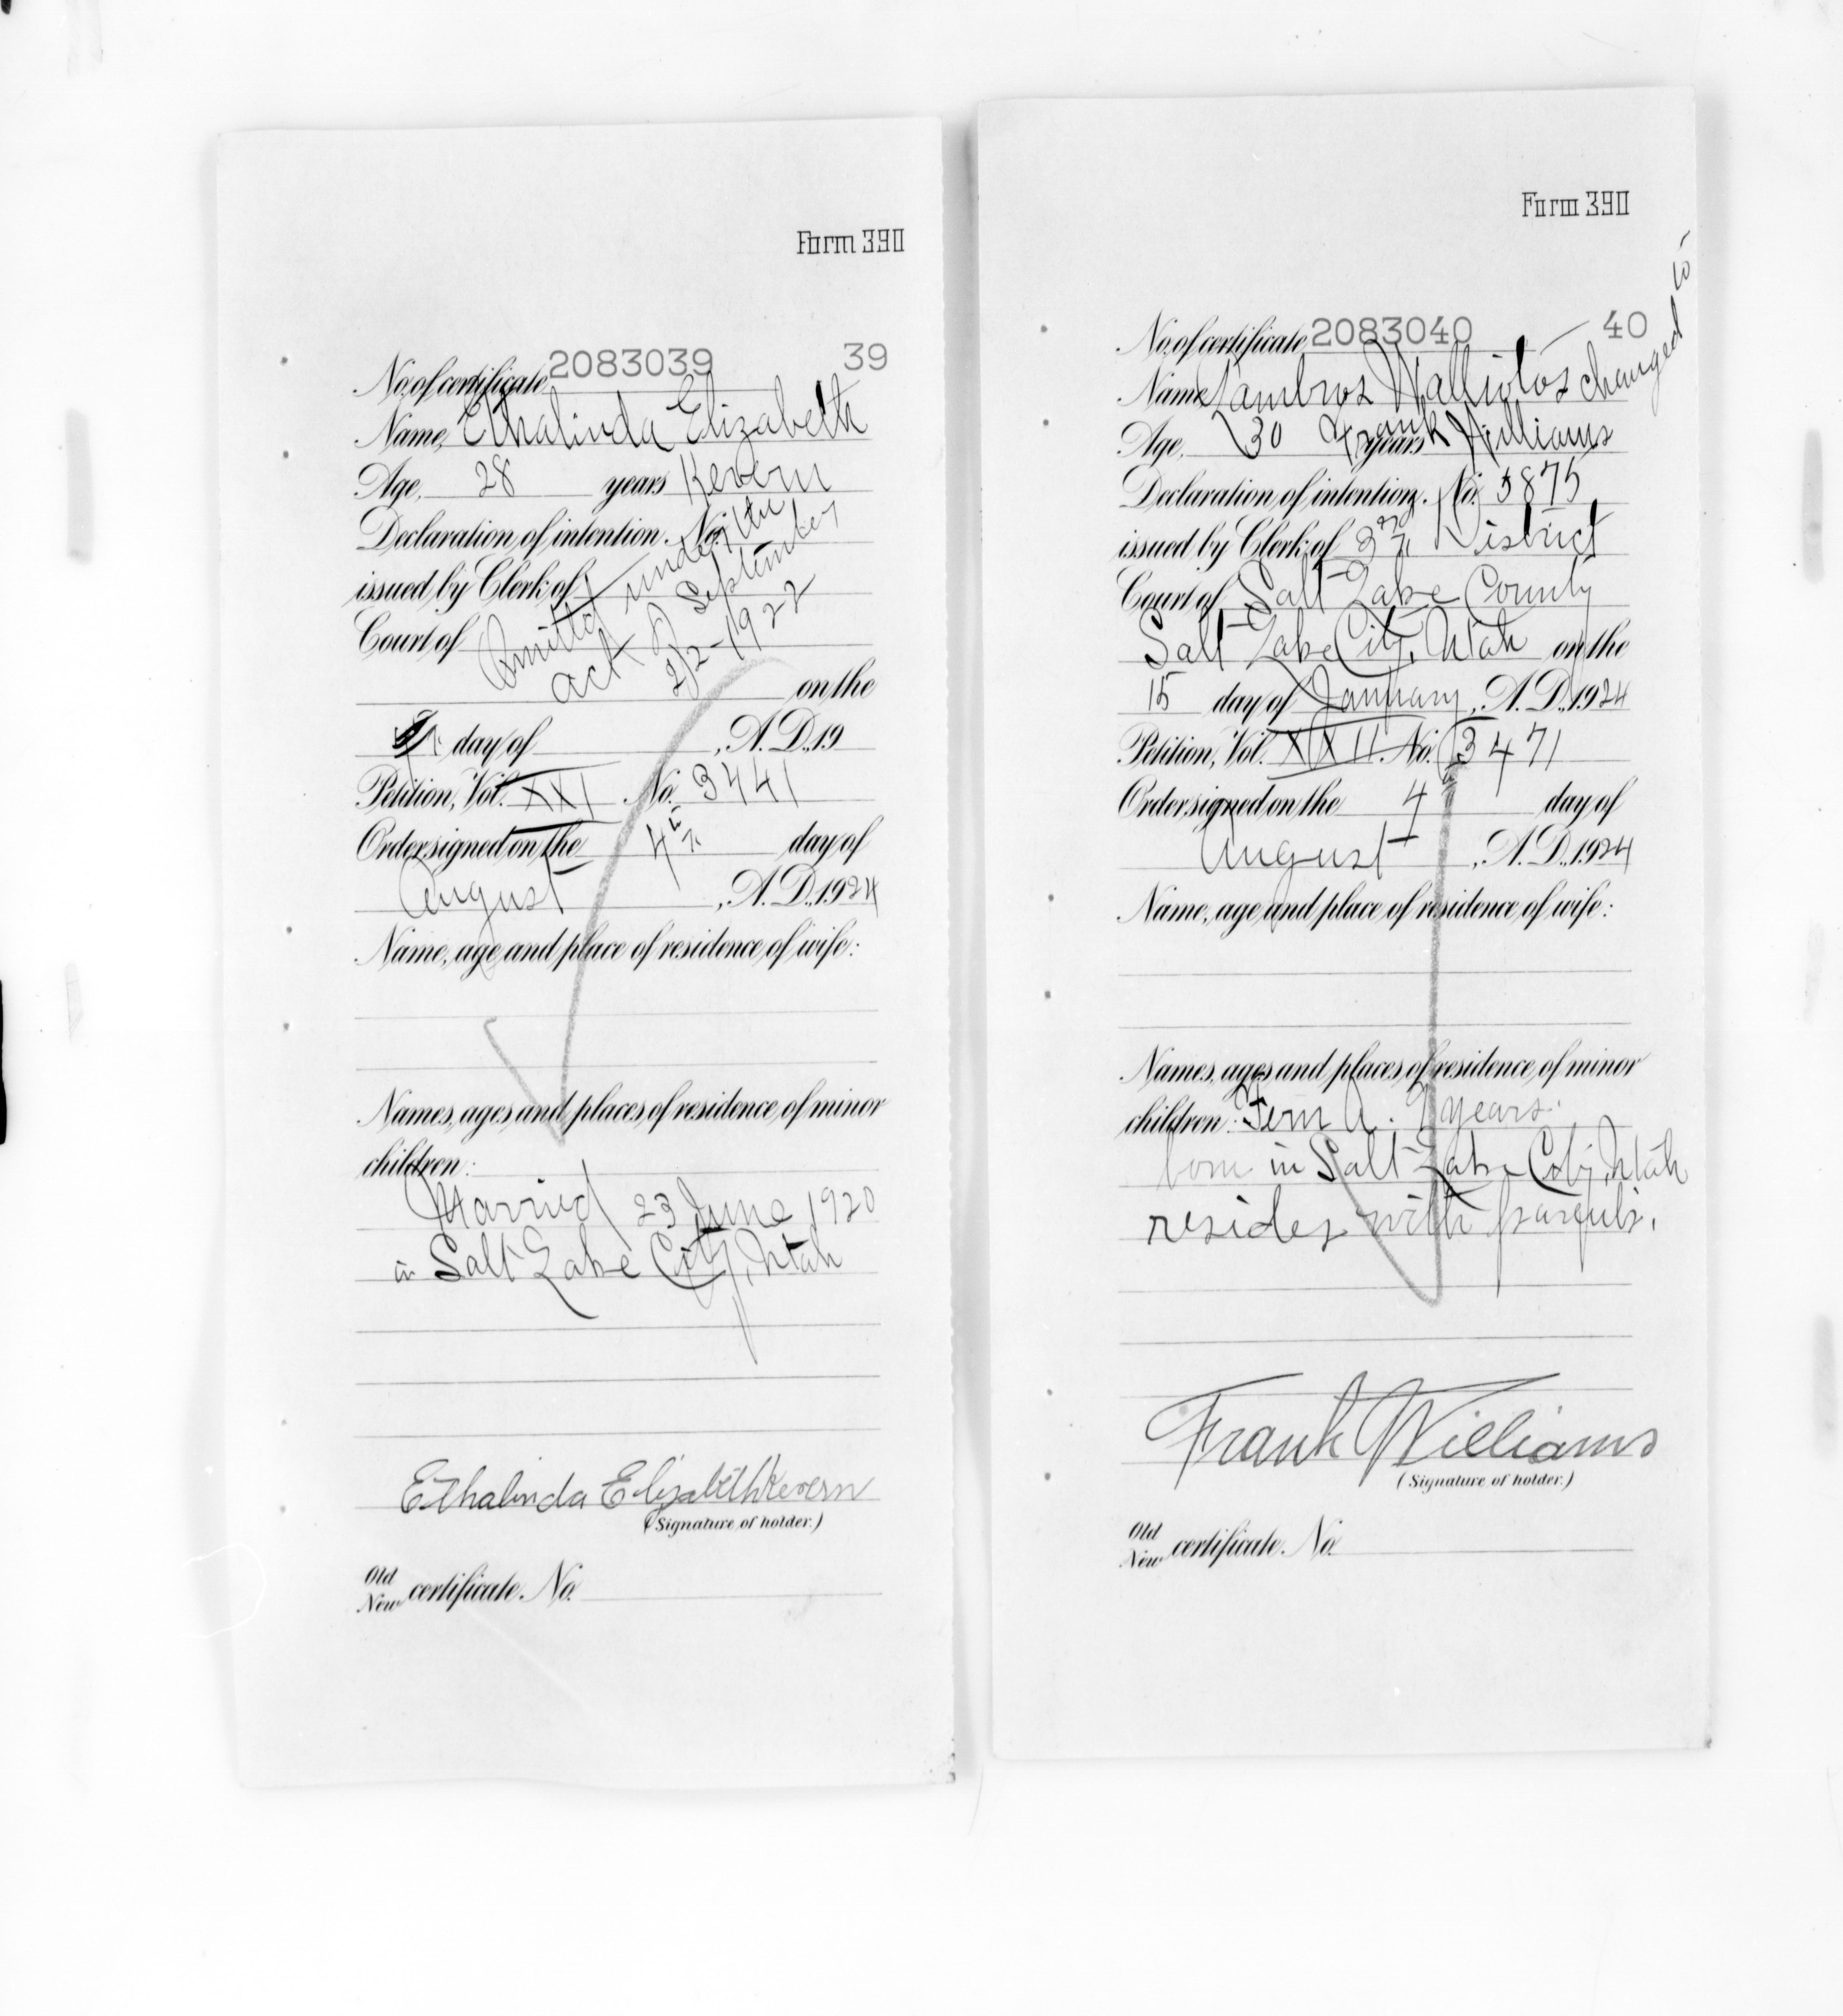 Form 390
No. of certificate 2083039 39
Name, Ethalinda Elizabeth
Age, 28 years Kevern
Declaration of intention. No.
issued by Clerk of
Court of
Omitted under the
act of September
22-1922
on the
day of , A. D., 19
Petition, Vol. XXI No. 3441
Order signed on the 4th day of
August , A. D., 1924
Name, age and place of residence of wife:
Names, ages and places of residence of minor
children:
Married 23 June 1920
in Salt Lake City, Utah
Ethalinda Elizabeth Kevern
(Signature of holder.)
Old
New certificate. No.
Form 390
No. of certificate 2083040 40
Name, Lambros Walliotos changed to
Age, 30 years Frank Williams
Declaration of intention. No. 5875
issued by Clerk of 3rd District
Court of Salt Lake County
Salt Lake City, Utah on the
15 day of January, A. D., 1924
Petition, Vol. XXII No. 3471
Order signed on the 4 day of
August , A. D., 1924
Name, age and place of residence of wife:
Names, ages and places of residence of minor
children: Fern A. years.
born in Salt Lake City, Utah
resides with parents.
Frank Williams
(Signature of holder.)
Old
New certificate. No.